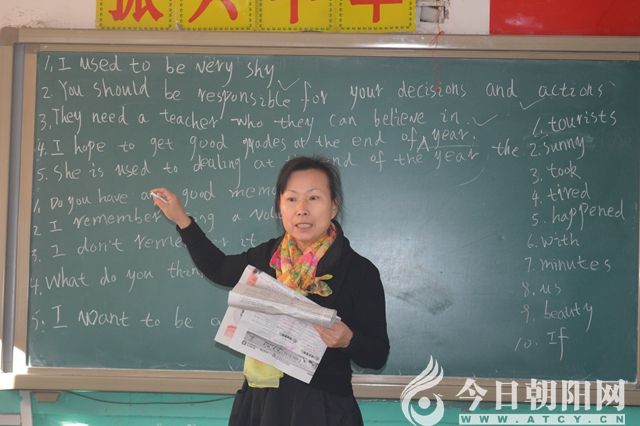 振兴中华
1. I used to be very shy
2. You should be responsible for your decisions and actions
3. They need a teacher who they can believe in.
4. I hope to get good grades at the end of A year. the
5. She is used to dealing at the end of the year
1. Do you have a good
2. I remember a
3. I don't remember it
4. What do you
5. I want to be a
1. tourists
2. sunny
3. took
4. tired
5. happened
6. with
7. minutes
8. us
9. beauty
10. If
今日朝阳网
WWW.ATCY.CN